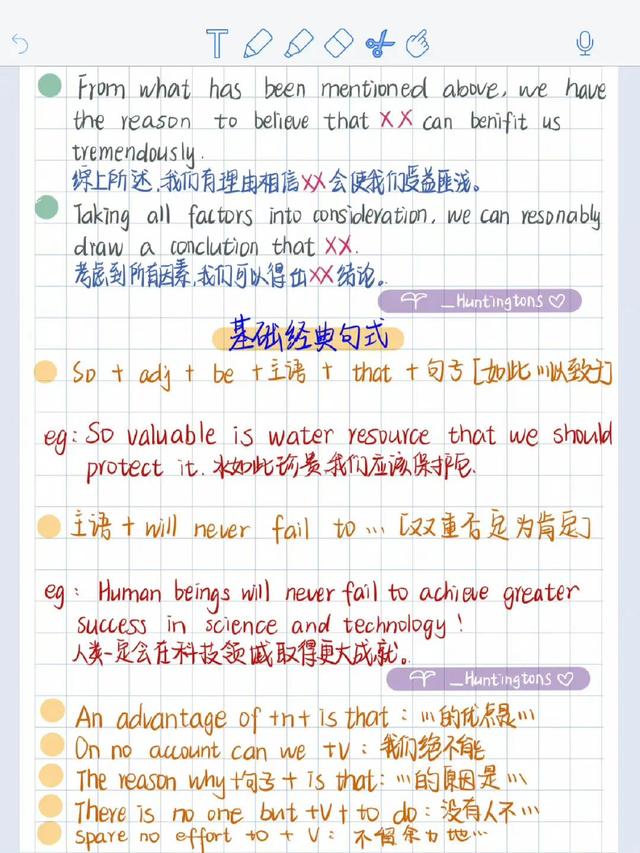 From what has been mentioned above, we have
the reason to believe that XX can benifit us
tremendously.
综上所述,我们有理由相信XX会使我们受益匪浅。
Taking all factors into consideration, we can resonably
draw a conclution that XX.
考虑到所有因素,我们可以得出XX结论。
_Huntingtons
基础经典句式
So + adj + be + 主语 + that + 句子 [如此…以致于]
eg: So valuable is water resource that we should
protect it. 水如此珍贵,我们应该保护它.
主语 + will never fail to … [双重否定为肯定]
eg: Human beings will never fail to achieve greater
success in science and technology!
人类一定会在科技领域取得更大成就。
_Huntingtons
An advantage of +n+ is that: …的优点是…
On no account can we +V: 我们绝不能
The reason why+句子+ is that: …的原因是…
There is no one but +V+ to do: 没有人不…
spare no effort to + V: 不留余力地…